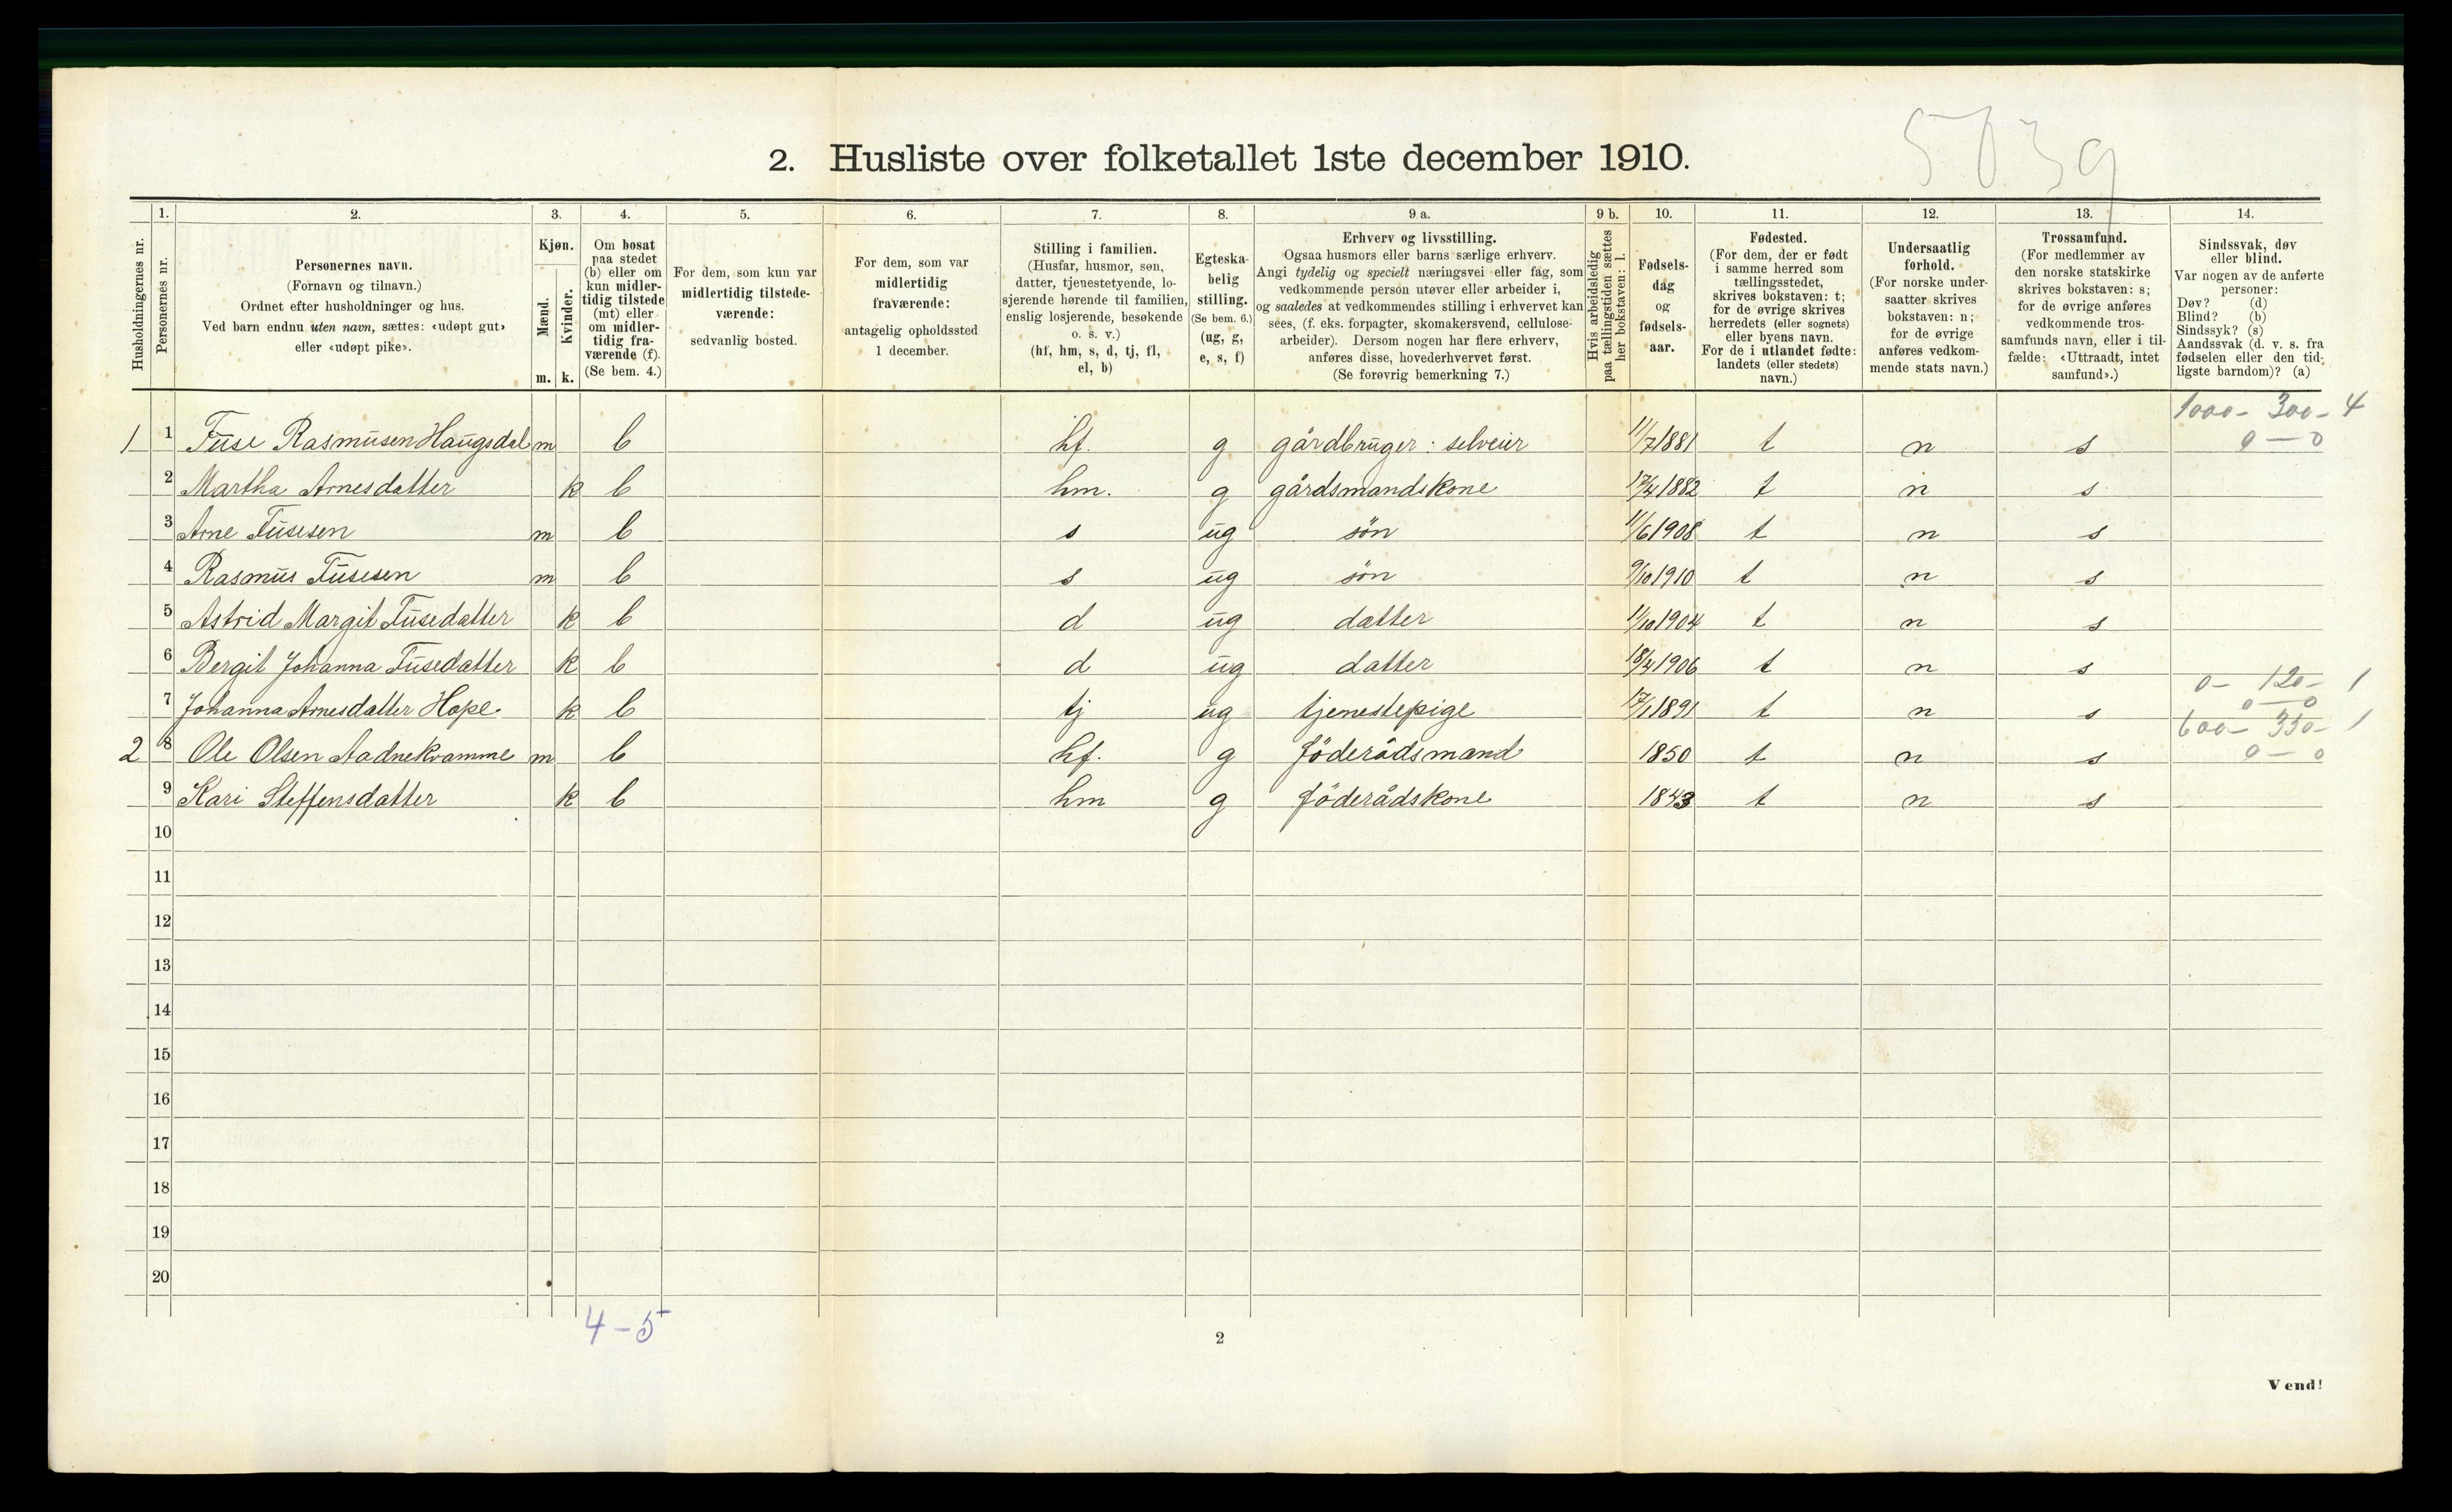 5039
2. Husliste over folketallet 1ste december 1910.
Husholdningernes nr.
1. Personernes nr.
2. Personernes navn.
(Fornavn og tilnavn.)
Ordnet efter husholdninger og hus.
Ved barn endnu uten navn, sættes: «udøpt gut»
eller «udøpt pike».
3. Kjøn.
Mænd. m.
Kvinder. k.
4. Om bosat
paa stedet
(b) eller om
kun midler-
tidig tilstede
(mt) eller
om midler-
tidig fra-
værende (f).
(Se bem. 4.)
5. For dem, som kun var
midlertidig tilstede-
værende:
sedvanlig bosted.
6. For dem, som var
midlertidig
fraværende:
antagelig opholdssted
1 december.
7. Stilling i familien.
(Husfar, husmor, søn,
datter, tjenestetyende, lo-
sjerende hørende til familien,
enslig losjerende, besøkende
o. s. v.)
(hf, hm, s, d, tj, fl,
el, b)
8. Egteska-
belig
stilling.
(Se bem. 6.)
(ug, g,
e, s, f)
9 a. Erhverv og livsstilling.
Ogsaa husmors eller barns særlige erhverv.
Angi tydelig og specielt næringsvei eller fag, som
vedkommende person utøver eller arbeider i,
og saaledes at vedkommendes stilling i erhvervet kan
sees, (f. eks. forpagter, skomakersvend, cellulose-
arbeider). Dersom nogen har flere erhverv,
anføres disse, hovederhvervet først.
(Se forøvrig bemerkning 7.)
9 b. Hvis arbeidsledig
paa tællingstiden sættes
her bokstaven: l.
10. Fødsels-
dag
og
fødsels-
aar.
11. Fødested.
(For dem, der er født
i samme herred som
tællingsstedet,
skrives bokstaven: t;
for de øvrige skrives
herredets (eller sognets)
eller byens navn.
For de i utlandet fødte:
landets (eller stedets)
navn.)
12. Undersaatlig
forhold.
(For norske under-
saatter skrives
bokstaven: n;
for de øvrige
anføres vedkom-
mende stats navn.)
13. Trossamfund.
(For medlemmer av
den norske statskirke
skrives bokstaven: s;
for de øvrige anføres
vedkommende tros-
samfunds navn, eller i til-
fælde: «Uttraadt, intet
samfund».)
14. Sindssvak, døv
eller blind.
Var nogen av de anførte
personer:
Døv? (d)
Blind? (b)
Sindssyk? (s)
Aandssvak (d. v. s. fra
fødselen eller den tid-
ligste barndom)? (a)
1000- 300- 4
1 1 Tuse Rasmusen Haugsdal m b hf. g gårdbruger: selveier 11/7 1881 t n s 0 — 0
2 Martha Arnesdatter k b hm. g gårdsmandskone 17/4 1882 t n s
3 Arne Tusesen m b s ug sön 11/6 1908 t n s
4 Rasmus Tusesen m b s ug sön 9/10 1910 t n s
5 Astrid Margit Tusedatter k b d ug datter 11/10 1904 t n s
6 Bergit Johanna Tusedatter k b d ug datter 18/4 1906 t n s
0- 120- 1
7 Johanna Arnesdatter Hope. k b tj ug tjenestepige 17/1 1891 t n s 0 — 0
600- 330- 1
2 8 Ole Olsen Aadnekvamme m b hf. g föderådsmand 1850 t n s 0 — 0
9 Kari Steffensdatter k b hm g föderådskone 1843 t n s
10
11
12
13
14
15
16
17
18
19
20
4-5
2
Vend!